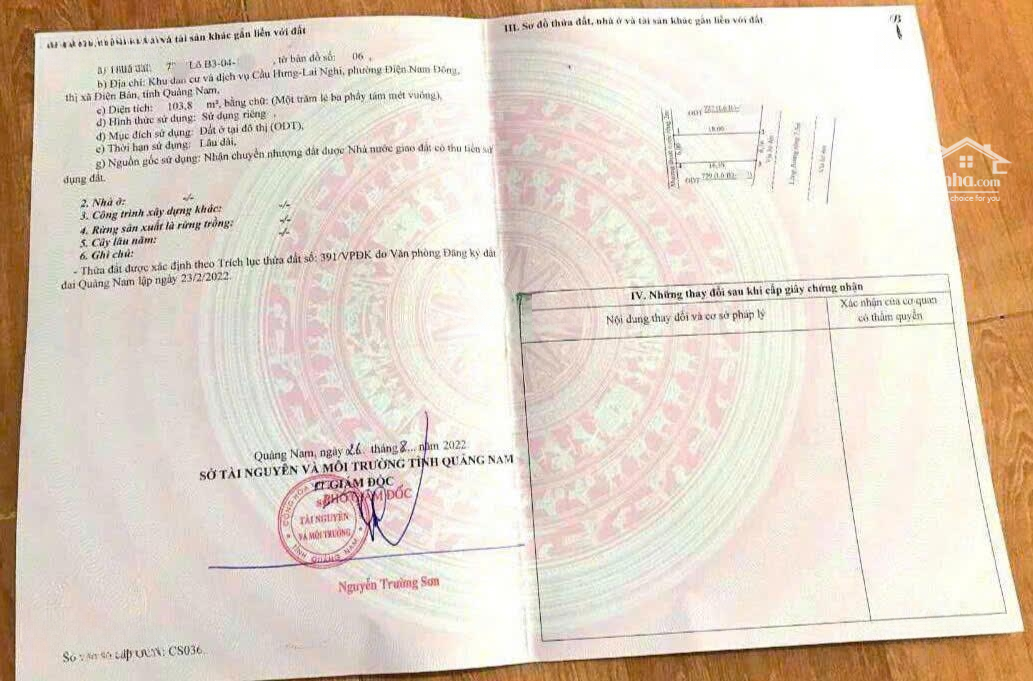 và tài sản khác gắn liền với đất
a) Thửa đất: 7 Lô B3-04- , tờ bản đồ số: 06 ,
b) Địa chỉ: Khu dân cư và dịch vụ Cầu Hưng-Lai Nghi, phường Điện Nam Đông,
thị xã Điện Bàn, tỉnh Quảng Nam,
c) Diện tích: 103,8 m², bằng chữ: (Một trăm lẻ ba phẩy tám mét vuông),
d) Hình thức sử dụng: Sử dụng riêng ,
đ) Mục đích sử dụng: Đất ở tại đô thị (ODT),
e) Thời hạn sử dụng: Lâu dài,
g) Nguồn gốc sử dụng: Nhận chuyển nhượng đất được Nhà nước giao đất có thu tiền sử
dụng đất.
2. Nhà ở: -/-
3. Công trình xây dựng khác: -/-
4. Rừng sản xuất là rừng trồng: -/-
5. Cây lâu năm: -/-
6. Ghi chú:
- Thửa đất được xác định theo Trích lục thửa đất số: 391/VPĐK do Văn phòng Đăng ký đất
đai Quảng Nam lập ngày 23/2/2022.
Quảng Nam, ngày 26 tháng 8... năm 2022
SỞ TÀI NGUYÊN VÀ MÔI TRƯỜNG TỈNH QUẢNG NAM
KT.GIÁM ĐỐC
PHÓ GIÁM ĐỐC
CỘNG HÒA
SỞ
TÀI NGUYÊN
VÀ MÔI TRƯỜNG
TỈNH QUẢNG NAM
Nguyễn Trường Sơn
Số vào sổ cấp GCN: CS036
III. Sơ đồ thửa đất, nhà ở và tài sản khác gắn liền với đất
B
ODT
18.00
ODT
Vỉa hè 4m
Lòng đường rộng 7.5m
Vỉa hè 4m
nha.com
choice for you
IV. Những thay đổi sau khi cấp giấy chứng nhận
Nội dung thay đổi và cơ sở pháp lý
Xác nhận của cơ quan
có thẩm quyền